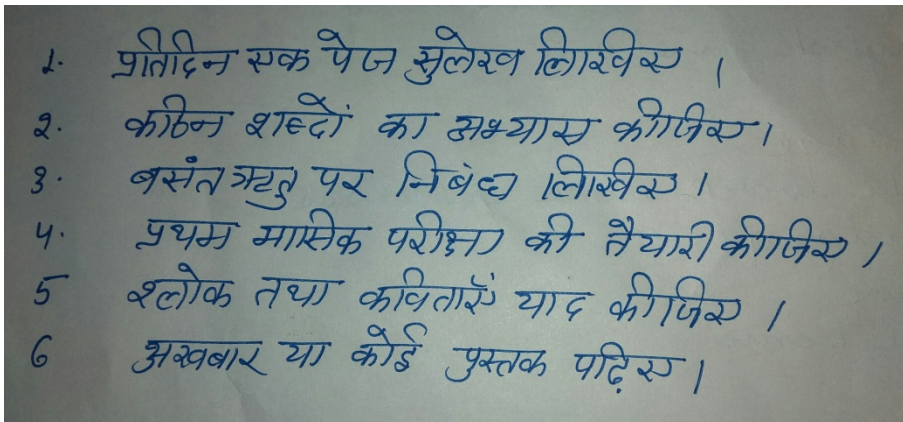 1. प्रतिदिन एक पेज सुलेख लिखिए ।
२. कठिन शब्दों का अभ्यास कीजिए।
३. बसंत ऋतु पर निबंध लिखिए ।
४. प्रथम मासिक परीक्षा की तैयारी कीजिए ।
5 श्लोक तथा कविताएँ याद कीजिए ।
6 अखबार या कोई पुस्तक पढ़िए।